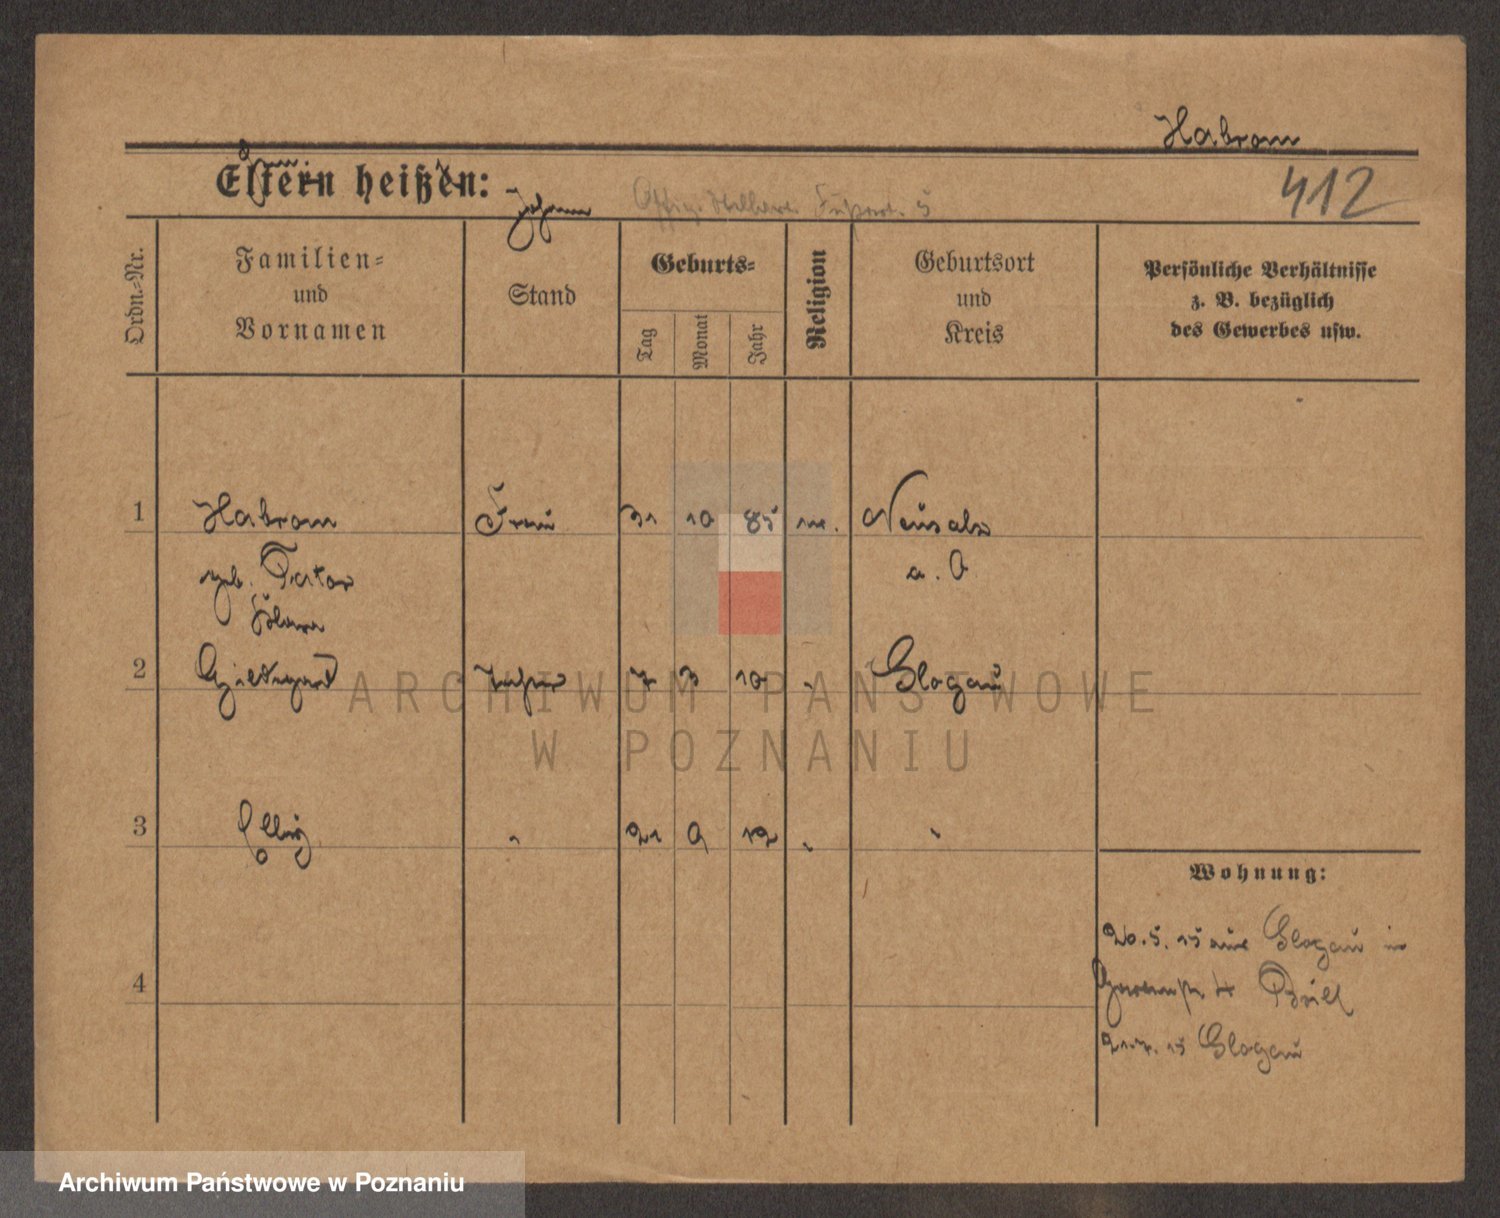 Habrom
Eltern heißen:
412
Johann
Ordn.-Nr.
Familien-
und
Vornamen
Stand
Geburts-
Tag
Monat
Jahr
Religion
Geburtsort
und
Kreis
Persönliche Verhältnisse
z. B. bezüglich
des Gewerbes usw.
1 Habrom Frau 31 10 85 Neusalz
geb. a. O
Klara
2 Hildegard Tochter 7 3 10 Glogau
ARCHIWUM PAŃSTWOWE
W POZNANIU
3 " 21 9 12 " "
Wohnung:
20.5.15 aus Glogau in
4
15 Glogau
Archiwum Państwowe w Poznaniu